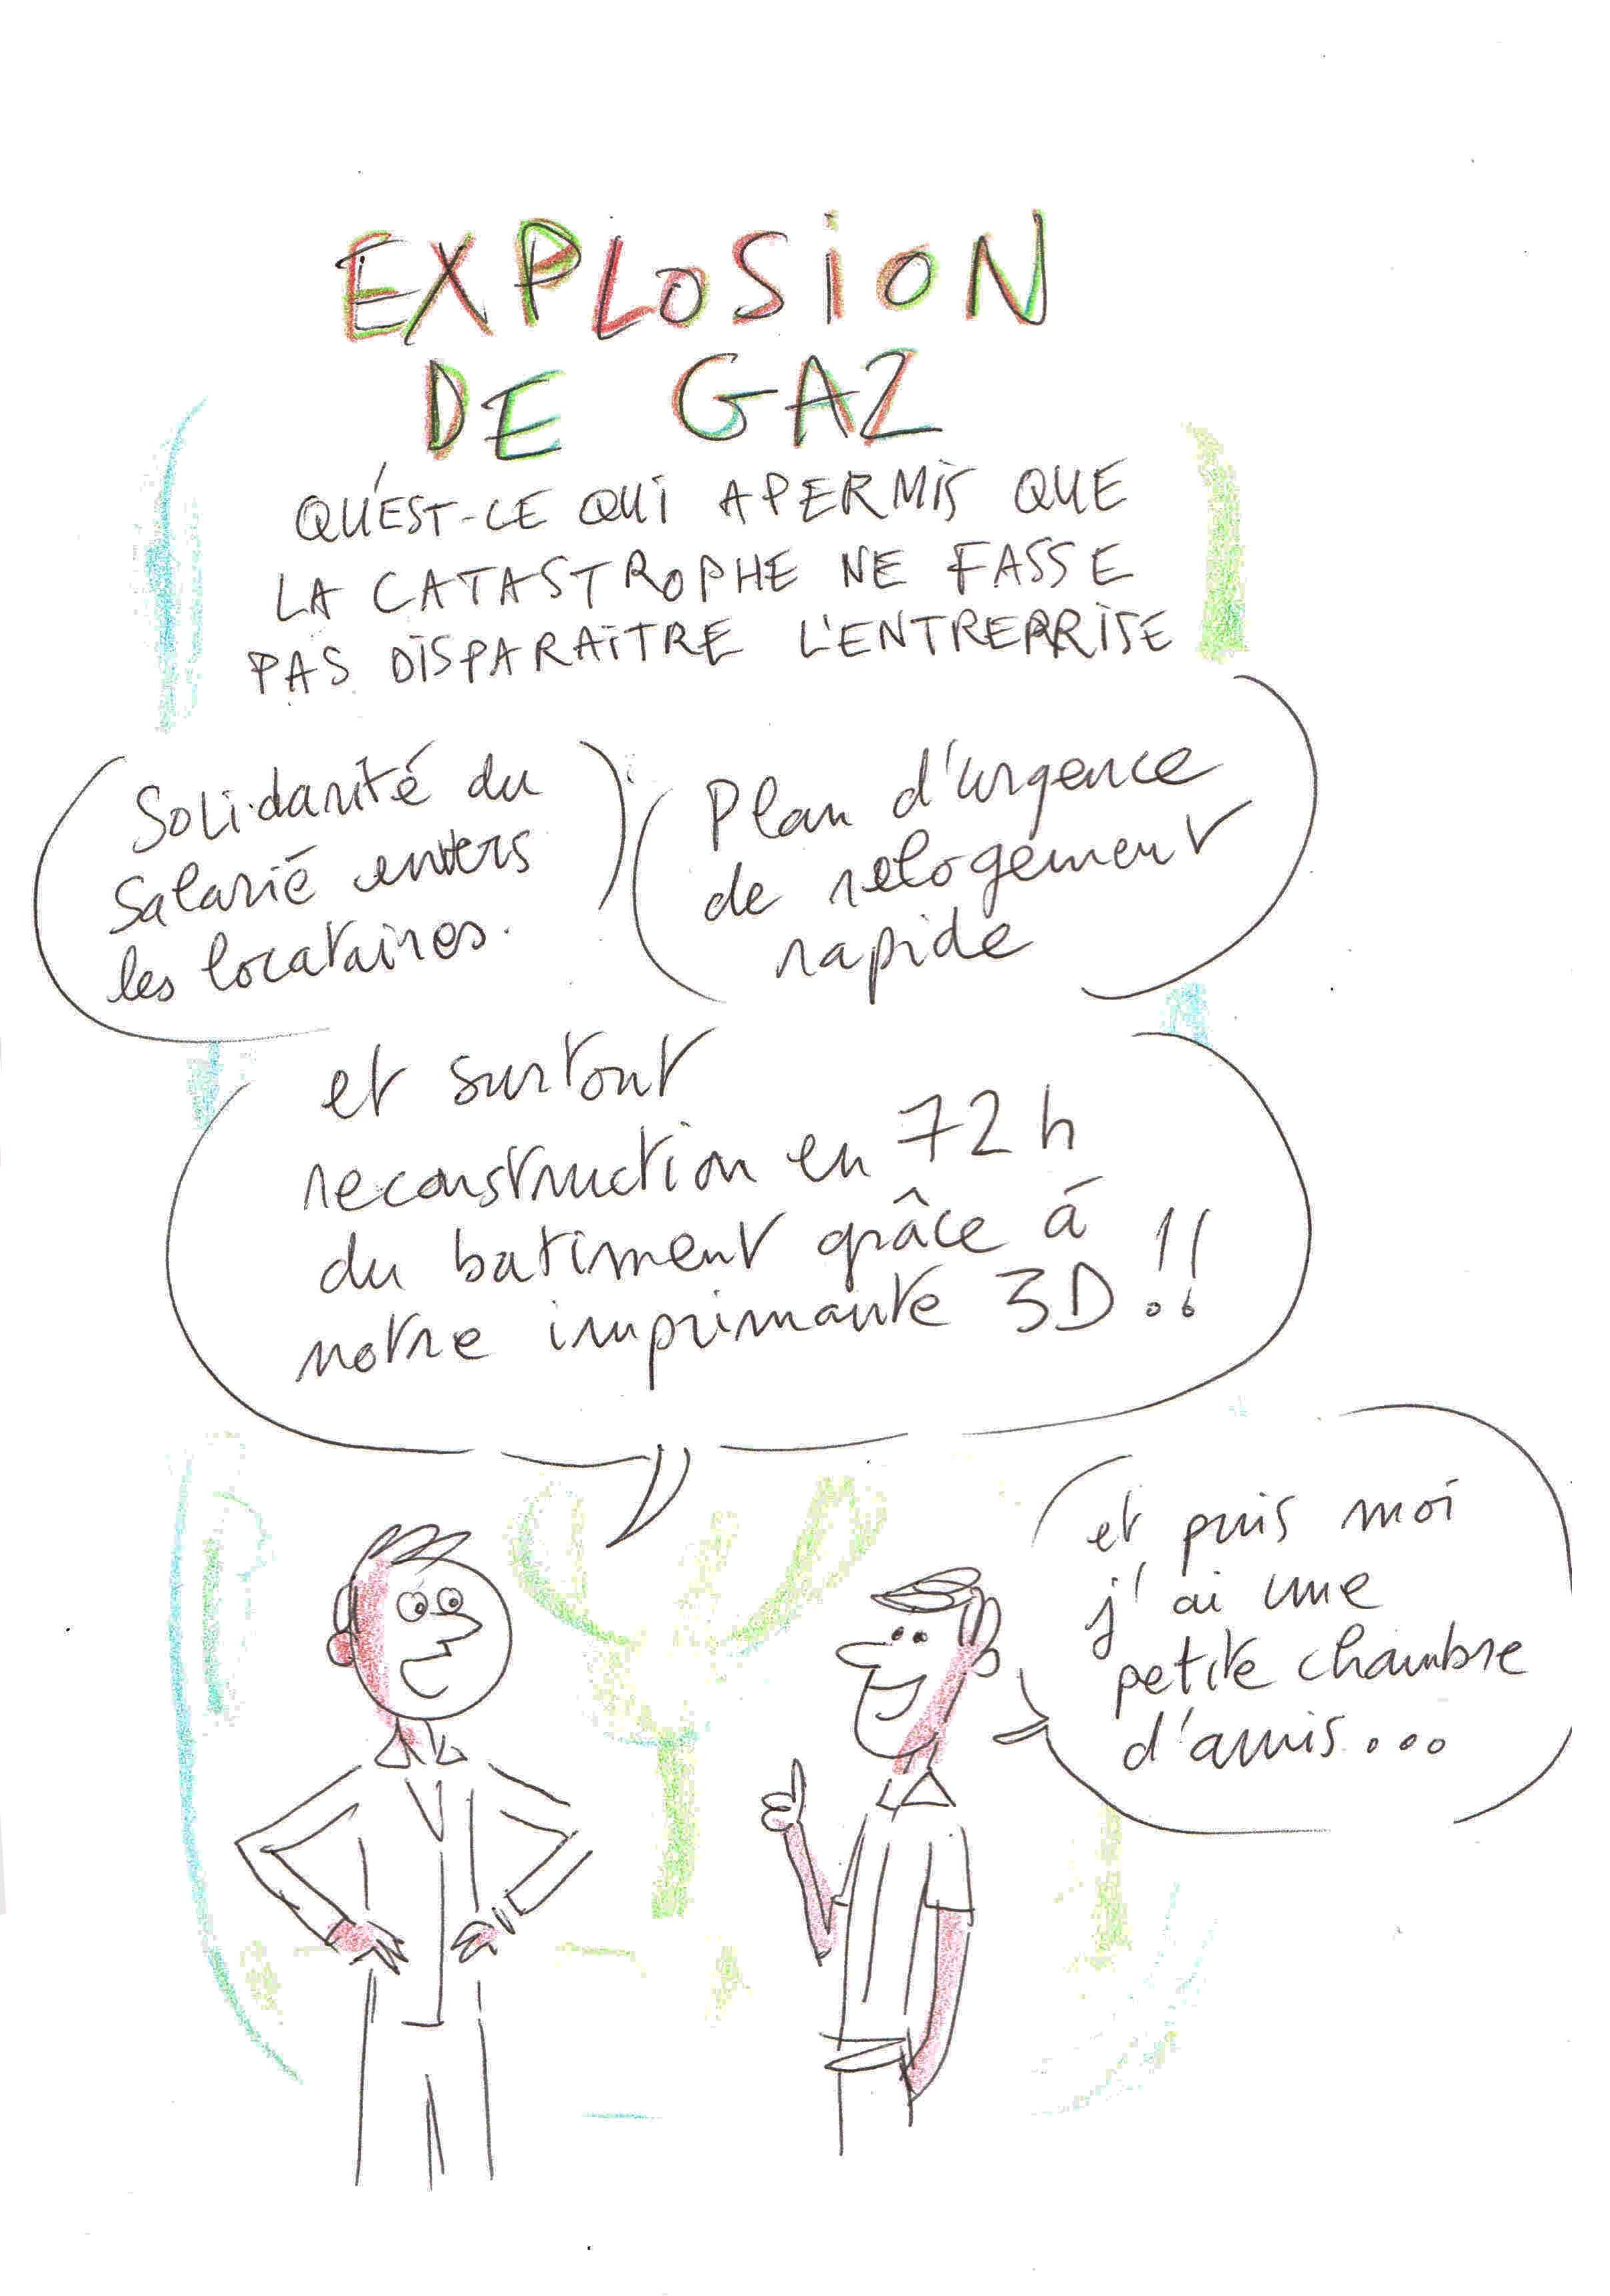 EXPLOSION
DE GAZ
QU'EST-CE QUI A PERMIS QUE
LA CATASTROPHE NE FASSE
PAS DISPARAITRE L'ENTREPRISE
Solidarité du
salarié envers
les locataires.
Plan d'urgence
de relogement
rapide
et surtout
reconstruction en 72 h
du batiment grâce à
notre imprimante 3D !!
et puis moi
j'ai une
petite chambre
d'amis...